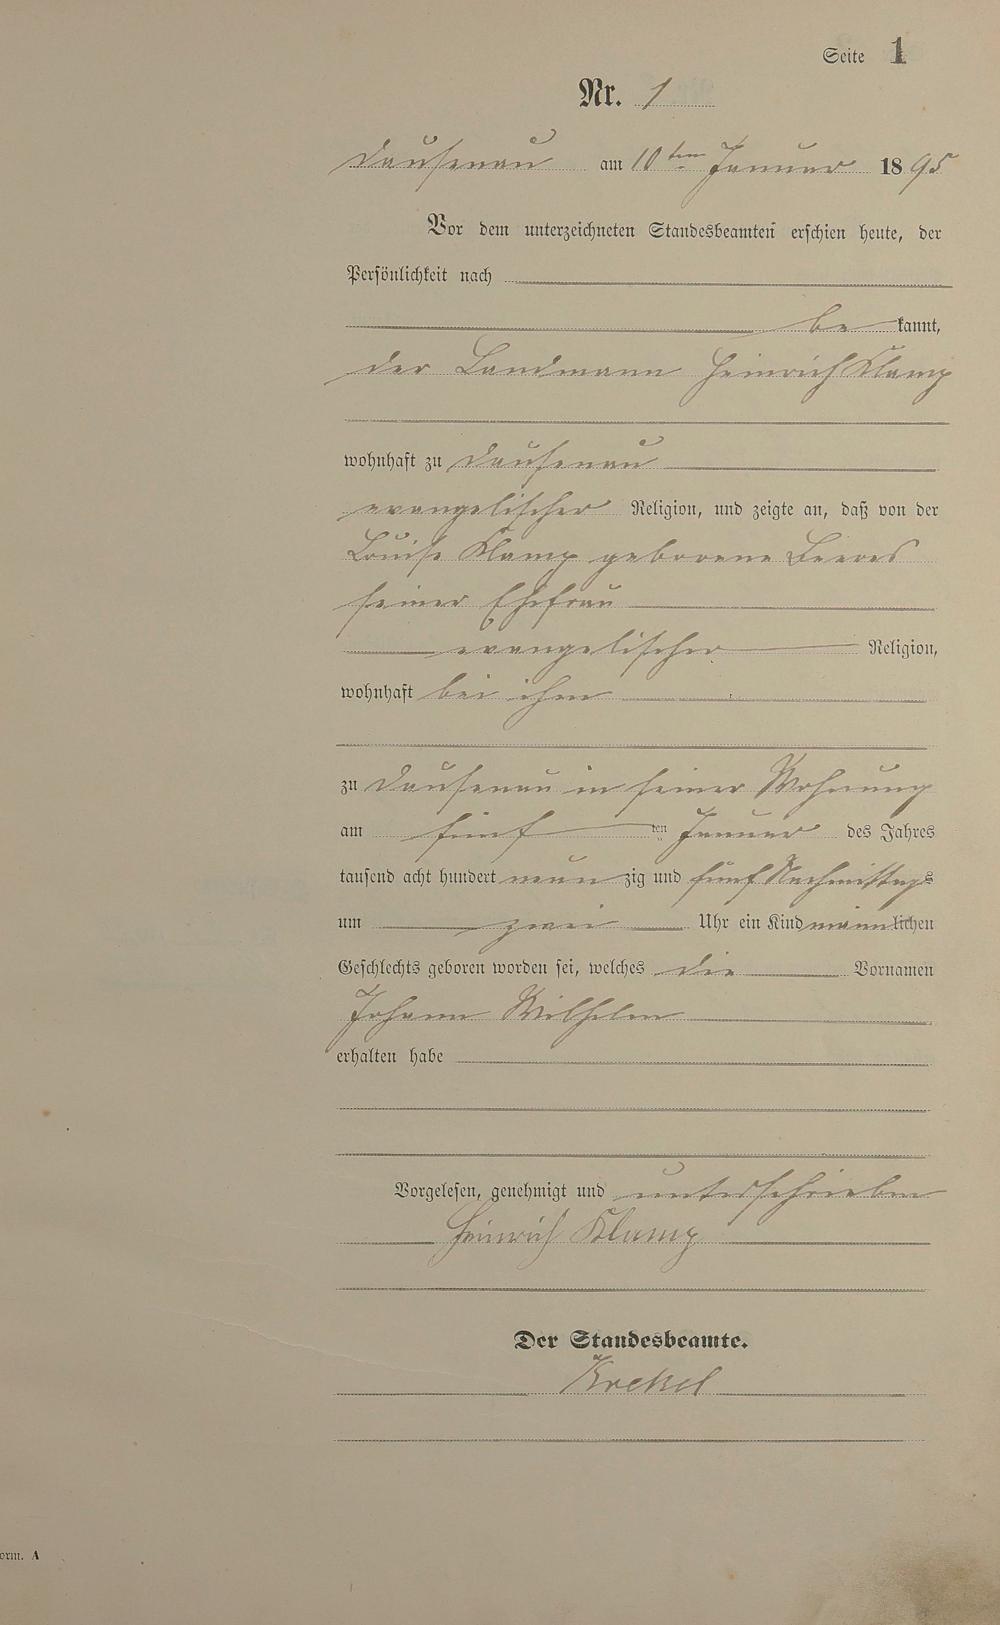 Seite 1
Nr. 1
Dausenau am 10ten Januar 1895
Vor dem unterzeichneten Standesbeamten erschien heute, der
Persönlichkeit nach
bekannt,
der Landmann Heinrich Klamp
wohnhaft zu Dausenau
evangelischer Religion, und zeigte an, daß von der
Louise Klamp geborene
seiner Ehefrau
evangelischer Religion,
wohnhaft bei ihm
zu Dausenau in seiner Wohnung
am fünften Januar des Jahres
tausend acht hundert neunzig und fünf Nachmittags
um zwei Uhr ein Kind männlichen
Geschlechts geboren worden sei, welches die Vornamen
Johann Wilhelm
erhalten habe
Vorgelesen, genehmigt und unterschrieben
Heinrich Klamp
Der Standesbeamte.
Krekel
orm. A